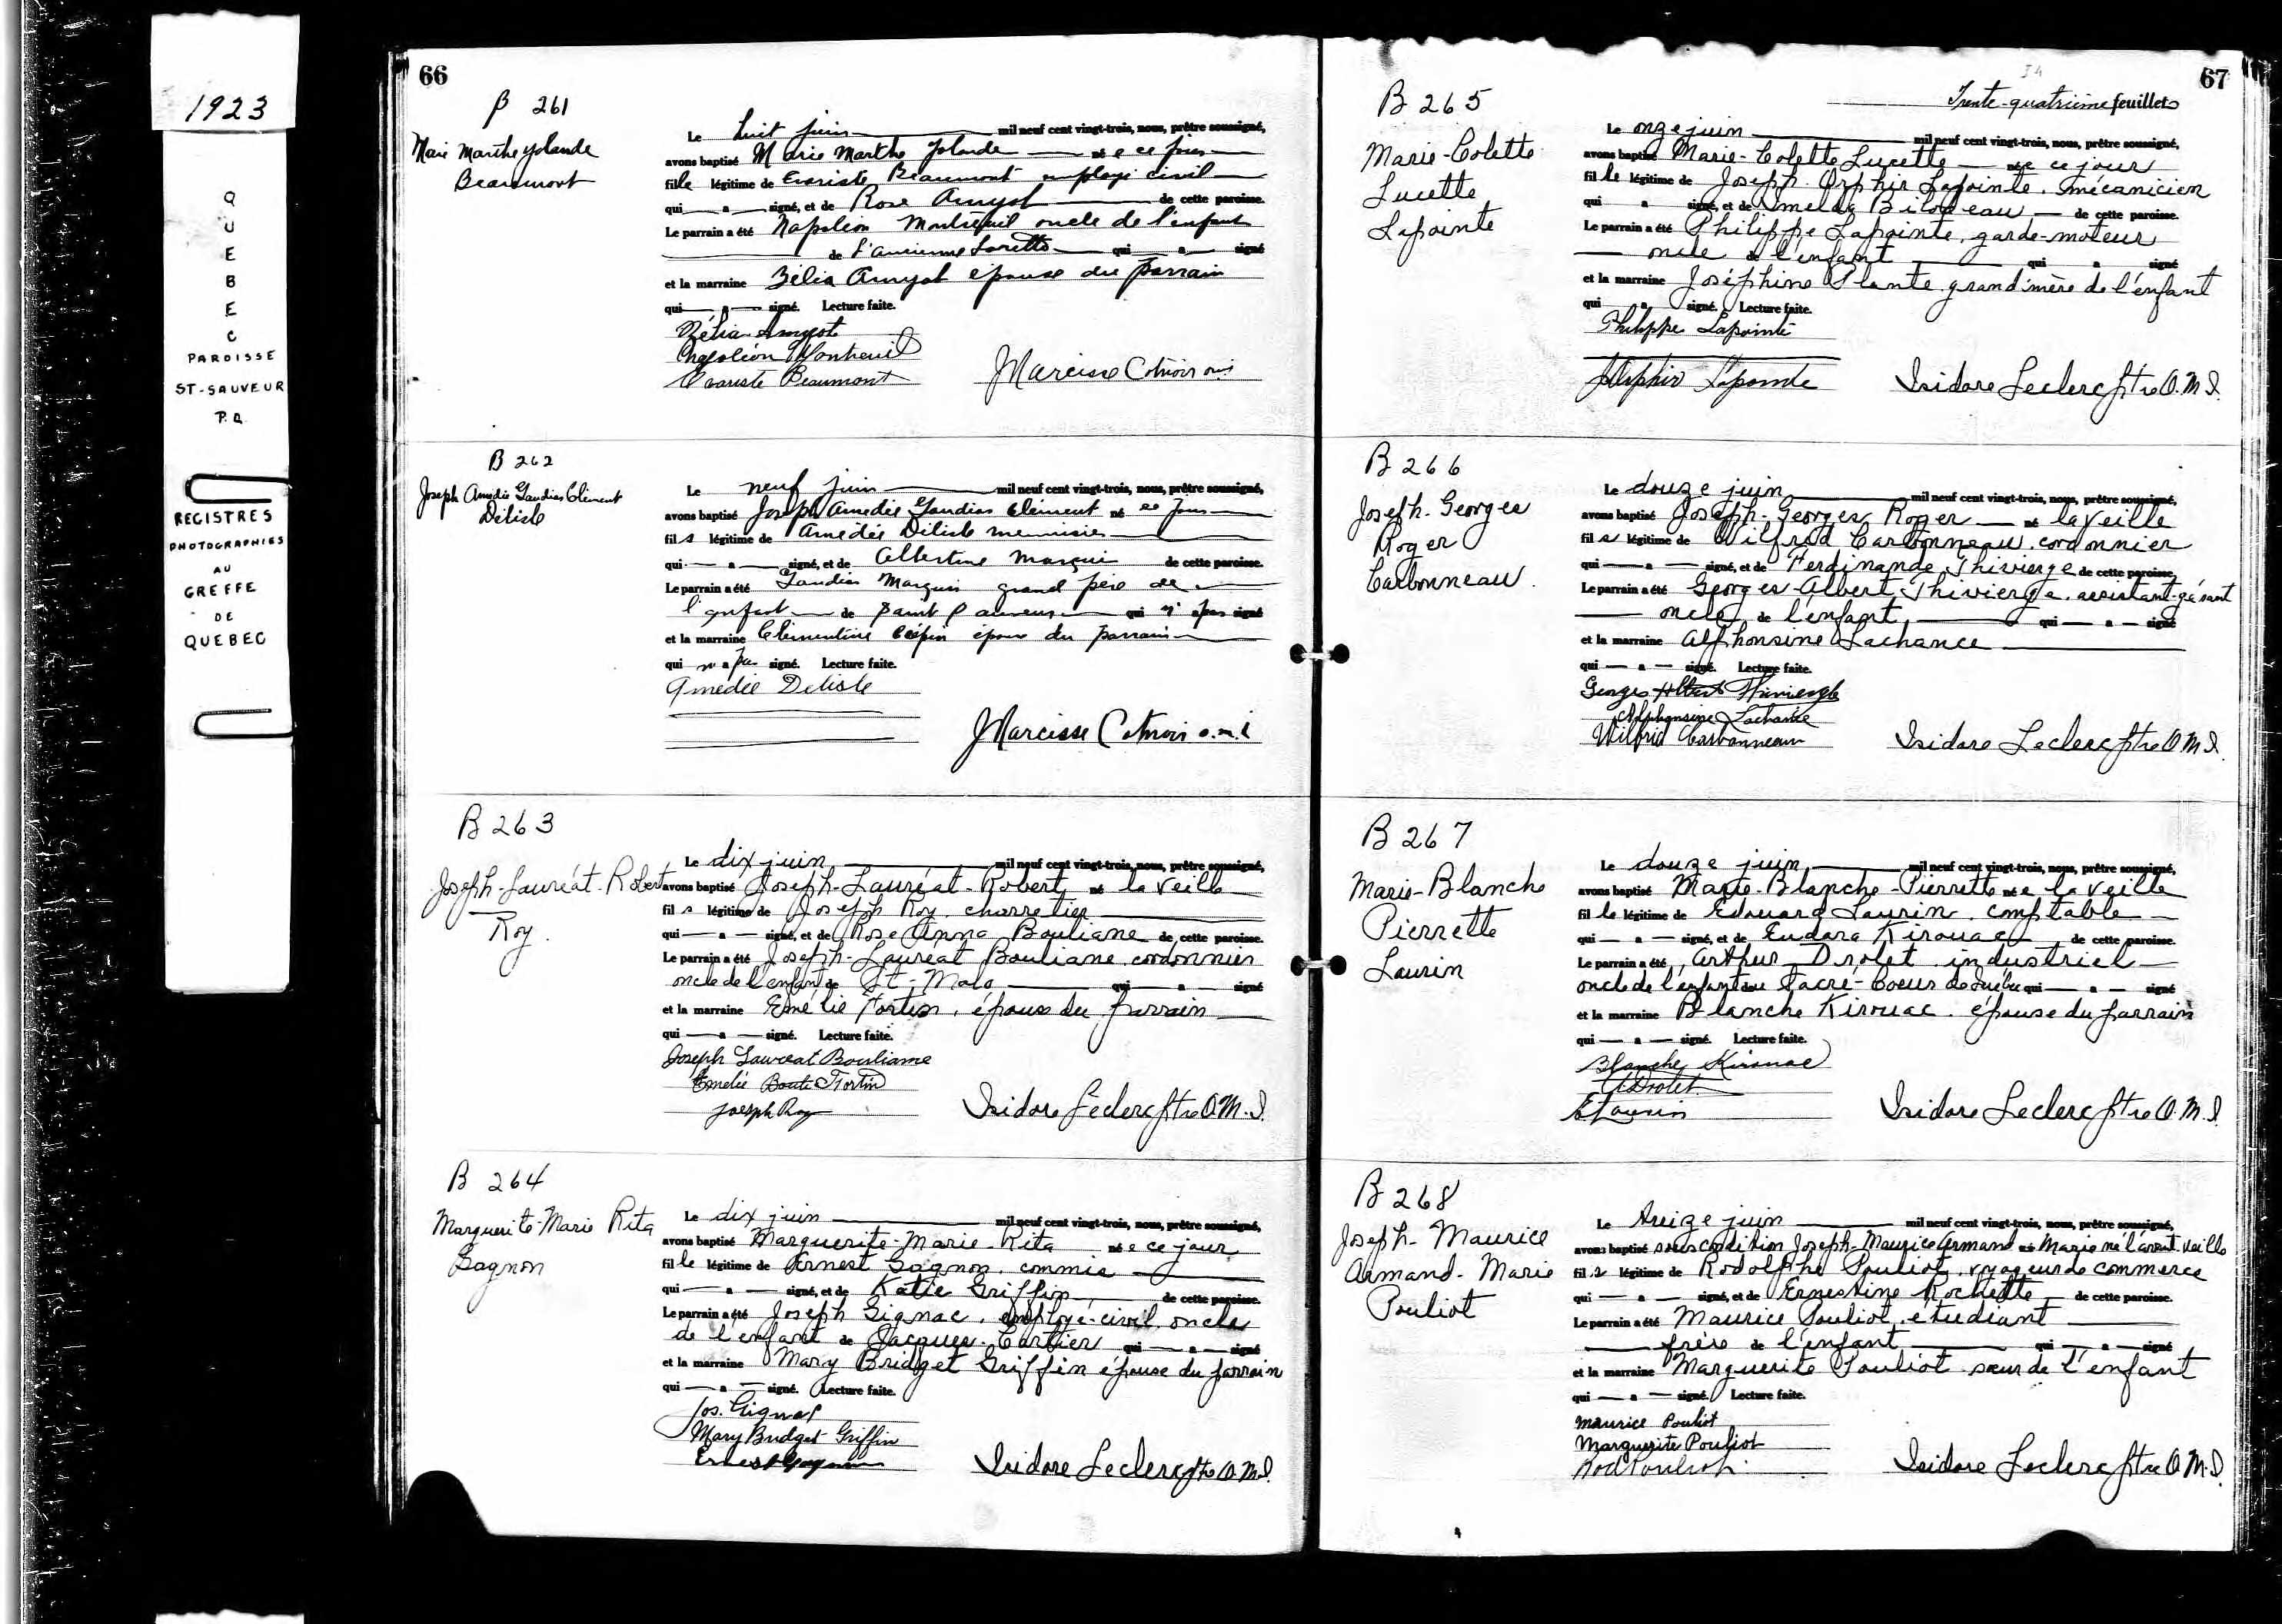 1923
QUEBEC
PAROISSE
ST-SAUVEUR
P.Q.
REGISTRES
PHOTOGRAPHIES
AU
GREFFE
DE
QUEBEC
66
B 261
Marie Marthe Yolande
Beaumont
Le huit juin mil neuf cent vingt-trois, nous, prêtre soussigné,
avons baptisé Marie Marthe Yolande née ce jour
fille légitime de Evariste Beaumont employé civil
qui a signé, et de Rose Amyot de cette paroisse.
Le parrain a été Napoléon Montreuil oncle de l'enfant
de l'Ancienne Lorette qui a signé
et la marraine Zélia Amyot épouse du parrain
qui a signé. Lecture faite.
Zélia Amyot
Napoléon Montreuil
Evariste Beaumont
Narcisse Cotnoir omi
B 262
Joseph Amédée Gaudias Clément
Delisle
Le neuf juin mil neuf cent vingt-trois, nous, prêtre soussigné,
avons baptisé Joseph Amédée Gaudias Clément né ce jour
fils légitime de Amédée Delisle menuisier
qui a signé, et de Albertine Marquis de cette paroisse.
Le parrain a été Gaudias Marquis grand père de
l'enfant de Saint Sauveur qui n'a pas signé
et la marraine Clémentine Crépin épouse du parrain
qui n'a pas signé. Lecture faite.
Amédée Delisle
Narcisse Cotnoir o.m.i
B 263
Joseph-Lauréat-Robert
Roy
Le dix juin mil neuf cent vingt-trois, nous, prêtre soussigné,
avons baptisé Joseph-Lauréat-Robert né la veille
fils légitime de Joseph Roy, charretier
qui a signé, et de Rose Anna Bouliane de cette paroisse.
Le parrain a été Joseph-Lauréat Bouliane, cordonnier
oncle de l'enfant de St-Malo qui a signé
et la marraine Emélie Fortin, épouse du parrain
qui a signé. Lecture faite.
Joseph Laureat Bouliane
Emelie Fortin
Joseph Roy
Isidore Leclerc ptre O.M.I.
B 264
Marguerite-Marie Rita
Gagnon
Le dix juin mil neuf cent vingt-trois, nous, prêtre soussigné,
avons baptisé Marguerite-Marie-Rita née ce jour
fille légitime de Ernest Gagnon, commis
qui a signé, et de Katie Griffin de cette paroisse.
Le parrain a été Joseph Gignac, employé-civil, oncle
de l'enfant de Jacques-Cartier qui a signé
et la marraine Mary Bridget Griffin épouse du parrain
qui a signé. Lecture faite.
Jos. Gignac
Mary Bridget Griffin
Ernest Gagnon
Isidore Leclerc ptre O.M.I.
67
34
Trente-quatrième feuillet
B 265
Marie-Colette
Lucette
Lapointe
Le onze juin mil neuf cent vingt-trois, nous, prêtre soussigné,
avons baptisé Marie-Colette Lucette née ce jour
fille légitime de Joseph Orphir Lapointe, mécanicien
qui a signé, et de Imelda Bilodeau de cette paroisse.
Le parrain a été Philippe Lapointe, garde-moteur
oncle de l'enfant qui a signé
et la marraine Joséphine Plante grand'mère de l'enfant
qui a signé. Lecture faite.
Philippe Lapointe
J Orphir Lapointe
Isidore Leclerc ptre O.M.I.
B 266
Joseph-Georges
Roger
Carbonneau
Le douze juin mil neuf cent vingt-trois, nous, prêtre soussigné,
avons baptisé Joseph-Georges Roger né la veille
fils légitime de Wilfrid Carbonneau, cordonnier
qui a signé, et de Ferdinande Thivierge de cette paroisse.
Le parrain a été Georges Albert Thivierge, assistant-gérant
oncle de l'enfant qui a signé
et la marraine Alphonsine Lachance
qui a signé. Lecture faite.
Georges Albert Thivierge
Alphonsine Lachance
Wilfrid Carbonneau
Isidore Leclerc ptre O.M.I.
B 267
Marie-Blanche
Pierrette
Laurin
Le douze juin mil neuf cent vingt-trois, nous, prêtre soussigné,
avons baptisé Marie-Blanche-Pierrette née la veille
fille légitime de Edouard Laurin, comptable
qui a signé, et de Eudora Kirouac de cette paroisse.
Le parrain a été Arthur Drolet industriel
oncle de l'enfant du Sacré-Coeur de Québec qui a signé
et la marraine Blanche Kirouac, épouse du parrain
qui a signé. Lecture faite.
Blanche Kirouac
A Drolet
E Laurin
Isidore Leclerc ptre O.M.I.
B 268
Joseph-Maurice
Armand-Marie
Pouliot
Le treize juin mil neuf cent vingt-trois, nous, prêtre soussigné,
avons baptisé sous condition Joseph-Maurice Armand Marie né l'avant-veille
fils légitime de Rodolphe Pouliot, voyageur de commerce
qui a signé, et de Ernestine Rochette de cette paroisse.
Le parrain a été Maurice Pouliot, étudiant
frère de l'enfant qui a signé
et la marraine Marguerite Pouliot soeur de l'enfant
qui a signé. Lecture faite.
Maurice Pouliot
Marguerite Pouliot
Rod Pouliot
Isidore Leclerc ptre O.M.I.